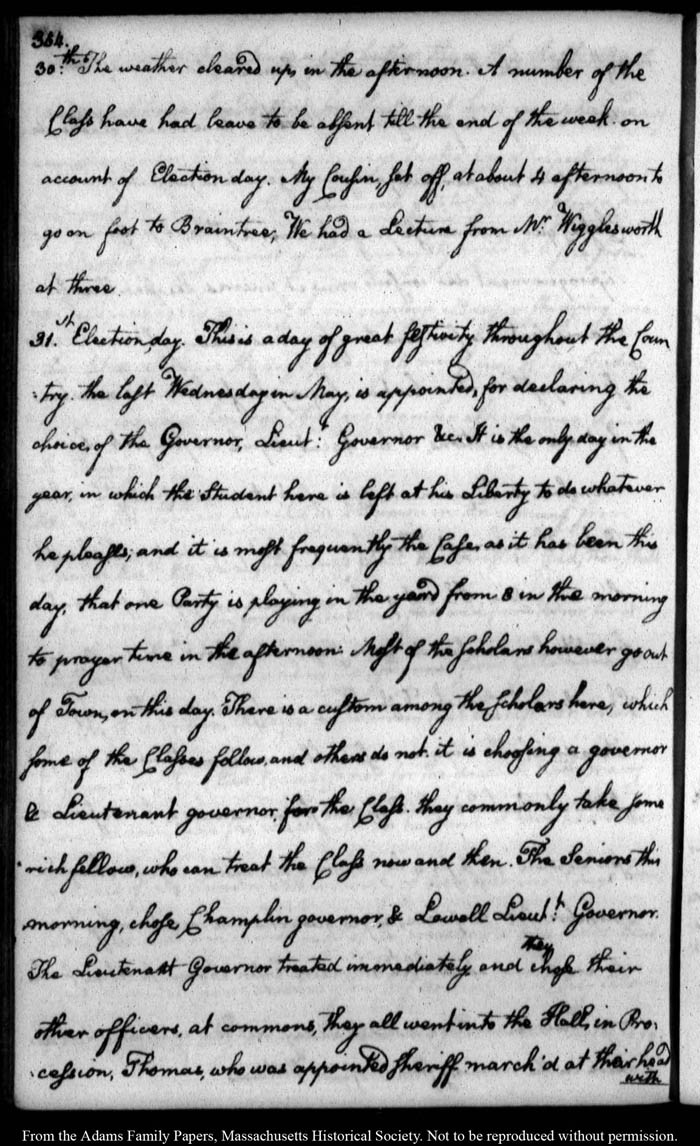 354.
30.th The weather cleared up, in the afternoon. A number of the
Class have had leave to be absent till the end of the week. on
account of Election day. My Cousin, set off, at about 4 afternoon to
go on foot to Braintree, We had a Lecture from Mr. Wigglesworth
at three.
31.st Election day. This is a day of great festivity throughout the Coun
:try. the last Wednesday in May, is appointed, for declaring the
choice, of the Governor, Lieut.t Governor &c. It is the only day in the
year, in which the Student here is left at his Liberty to do whatever
he pleases; and it is most frequently the Case, as it has been this
day, that one Party is playing in the yard from 8 in the morning
to prayer time in the afternoon: Most of the scholars however go out
of Town, on this day. There is a custom among the scholars here, which
some of the Classes follow, and others do not. it is choosing a governor
& Lieutenant governor, for the Class. they commonly take some
rich fellow, who can treat the Class now and then. The Seniors this
morning, chose, Champlin governor, & Lowell Lieut.t Governor.
The Lieutenant Governor treated immediately, and they chose their
other officers. at commons, they all went into the Hall, in Pro:
:cession, Thomas, who was appointed sheriff march'd at their head
with
From the Adams Family Papers, Massachusetts Historical Society. Not to be reproduced without permission.